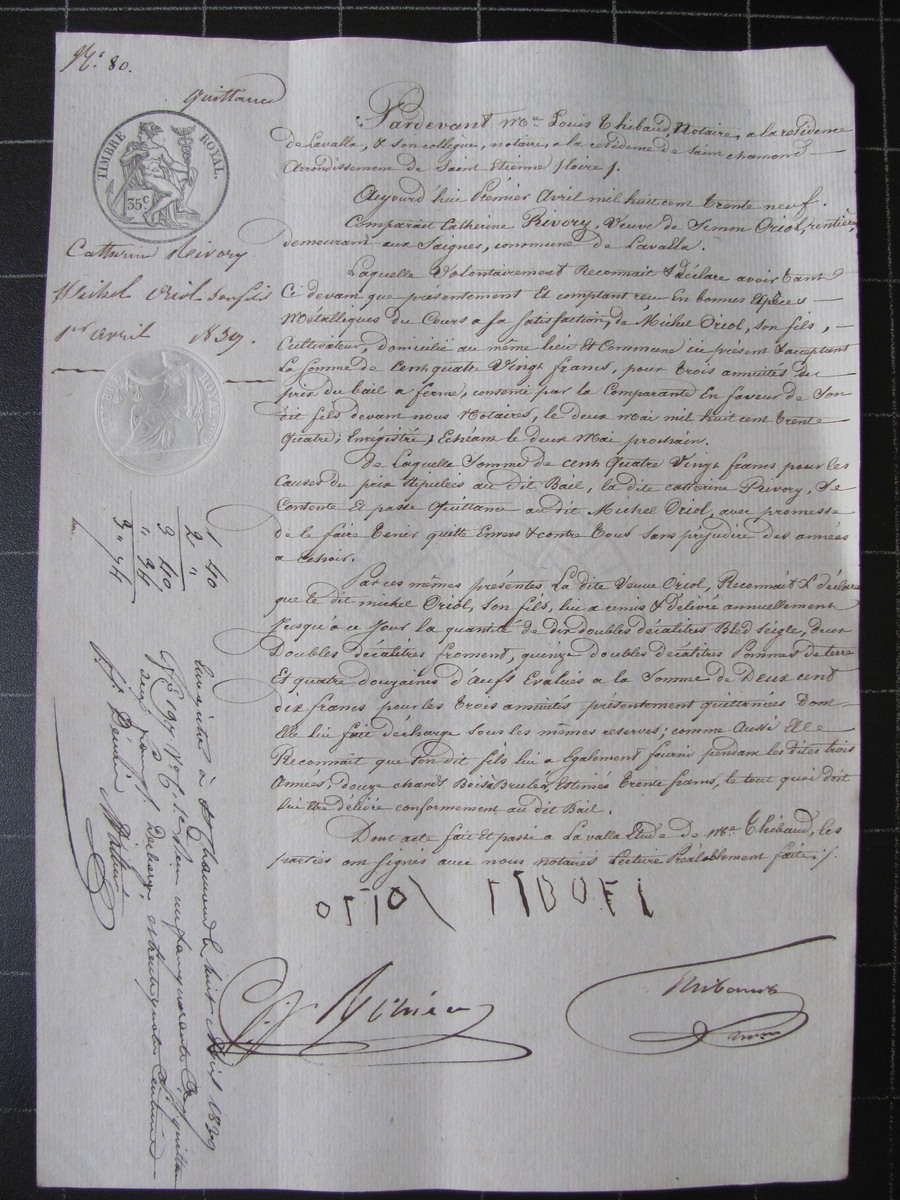 N.º 80.
quittance
TIMBRE ROYAL.
35 c
Catherine Rivory
Michel Oriol son fils
1er avril 1839.
Pardevant me Louis Thibaud, Notaire, a la résidence
de Lavalla, & son collègue, notaire, a la résidence de saint chamond
Arrondissement de Saint Etienne (loire).
Aujourd'hui Premier Avril mil huit cent trente neuf.
Comparait Catherine Rivory, Veuve de Simon Oriol, rentière,
demeurant aux Saignes, commune de Lavalla.
Laquelle Volontairement Reconnait & déclare avoir tant
Ci devant que présentement Et comptant reçu En bonnes Espèces
Métalliques du Cours a sa satisfaction, de Michel Oriol, son fils,
Cultivateur, domicilié au même lieu Et Commune ici présent & acceptant
La Somme de Cent quatre Vingt francs, pour trois annuités du
prix du bail a ferme, consenti par la Comparante En faveur de Son
dit fils devant nous Notaires, le deux mai mil huit cent trente
quatre; Enrégistré, Echéant le deux Mai prochain.
De Laquelle Somme de cent quatre Vingt francs pour les
Causes du prix Stipulées au dit Bail, la dite catherine Rivory, Se
Contente Et passe Quittance au dit Michel Oriol, avec promesse
de le faire tenir quitte Envers & contre tous sans préjudice des années
a échoir.
Par ces mêmes présentes La dite Veuve Oriol, Reconnait & déclare
que le dit michel Oriol, Son fils, lui a remis & délivré annuellement
Jusqu'à ce Jour la quantité de dix doubles décalitres Bled Seigle, deux
Doubles décalitres froment, quinze doubles décalitres Pommes de terre
Et quatre douzaines d'œufs Evalués a la Somme de Deux cent
dix francs pour les trois annuités présentement quittancées Dont
Elle lui fait décharge sous les mêmes reserves; comme Aussi Elle
Reconnait que son dit fils lui a également fourni pendant les dites trois
Années, douze chards Bois a Bruler, Estimés trente francs, le tout quoi doit
lui être délivré conformement au dit Bail.
Dont acte fait Et passé a Lavalla Etude de me Thibaud, les
parties ont signés avec nous notaires Lecture Préalablement faite ./.
1 40
2 "
3 40
" 34
3 " 74
Enregistré à St Chamond le huit Avril 1839
f° 191 V° C. 6 Reçu un franc quarante Cmes quittance
deux francs Décharge et trente quatre centimes
Thibaud